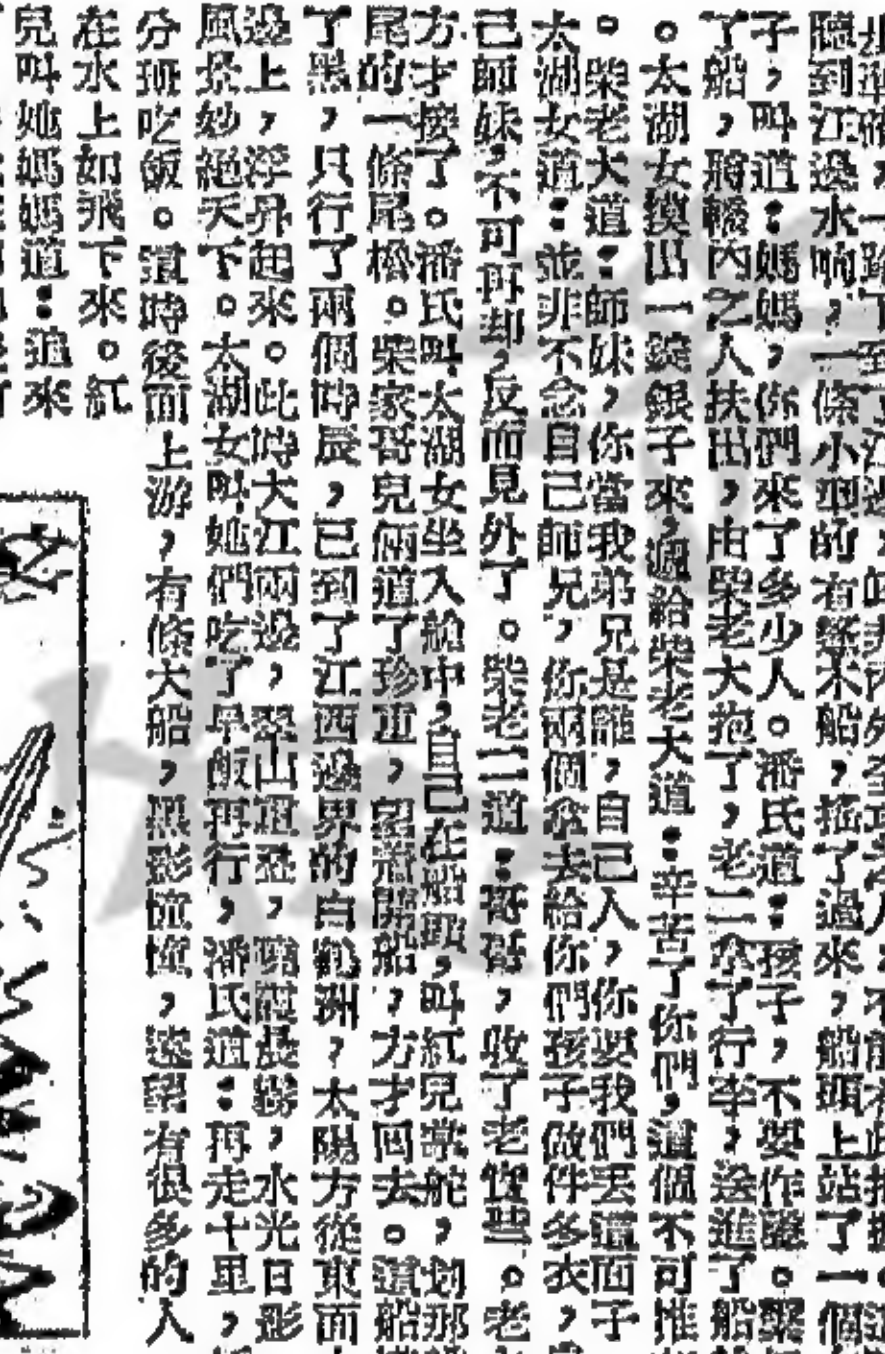 聽到江邊水响,一條小型的右篷木船,搖了過來,船頭上站了一個
子,叫道:媽媽,你們來了多少人。潘氏道:孩子,不要作聲。
了船,將轎內之人扶出,由柴老大抱了,老二拿了行李,送進了船
。太湖女摸出一錠銀子來,遞給柴老大道:辛苦了你們,這個不可推
。柴老大道:師妹,你當我弟兄是誰,自己人,你要我們丟這面子
太湖女道:並非不念自己師兄,你兩個拿去給你們孩子做件冬衣,
己師妹,不可再却,反而見外了。柴老二道:哥哥,收了老實些。老
方才接了。潘氏叫太湖女坐入艙中,自己在船頭,叫紅兒掌舵,划那
尾的一條尾櫓。柴家哥兒倆道了珍重,望着開船,方才回去。這船
了黑,只行了兩個時辰,已到了江西邊界的白鶴洲,太陽方從東面
邊上,浮昇起來。此時大江兩邊,翠山重叠,曉霞晨霧,水光日影
風景妙絕天下。太湖女叫她們吃了早飯再行,潘氏道:再走十里,
分班吃飯。這時後面上游,有條大船,黑影憧憧,遠望有很多的人
在水上如飛下來。紅
兒叫她媽媽道:追來